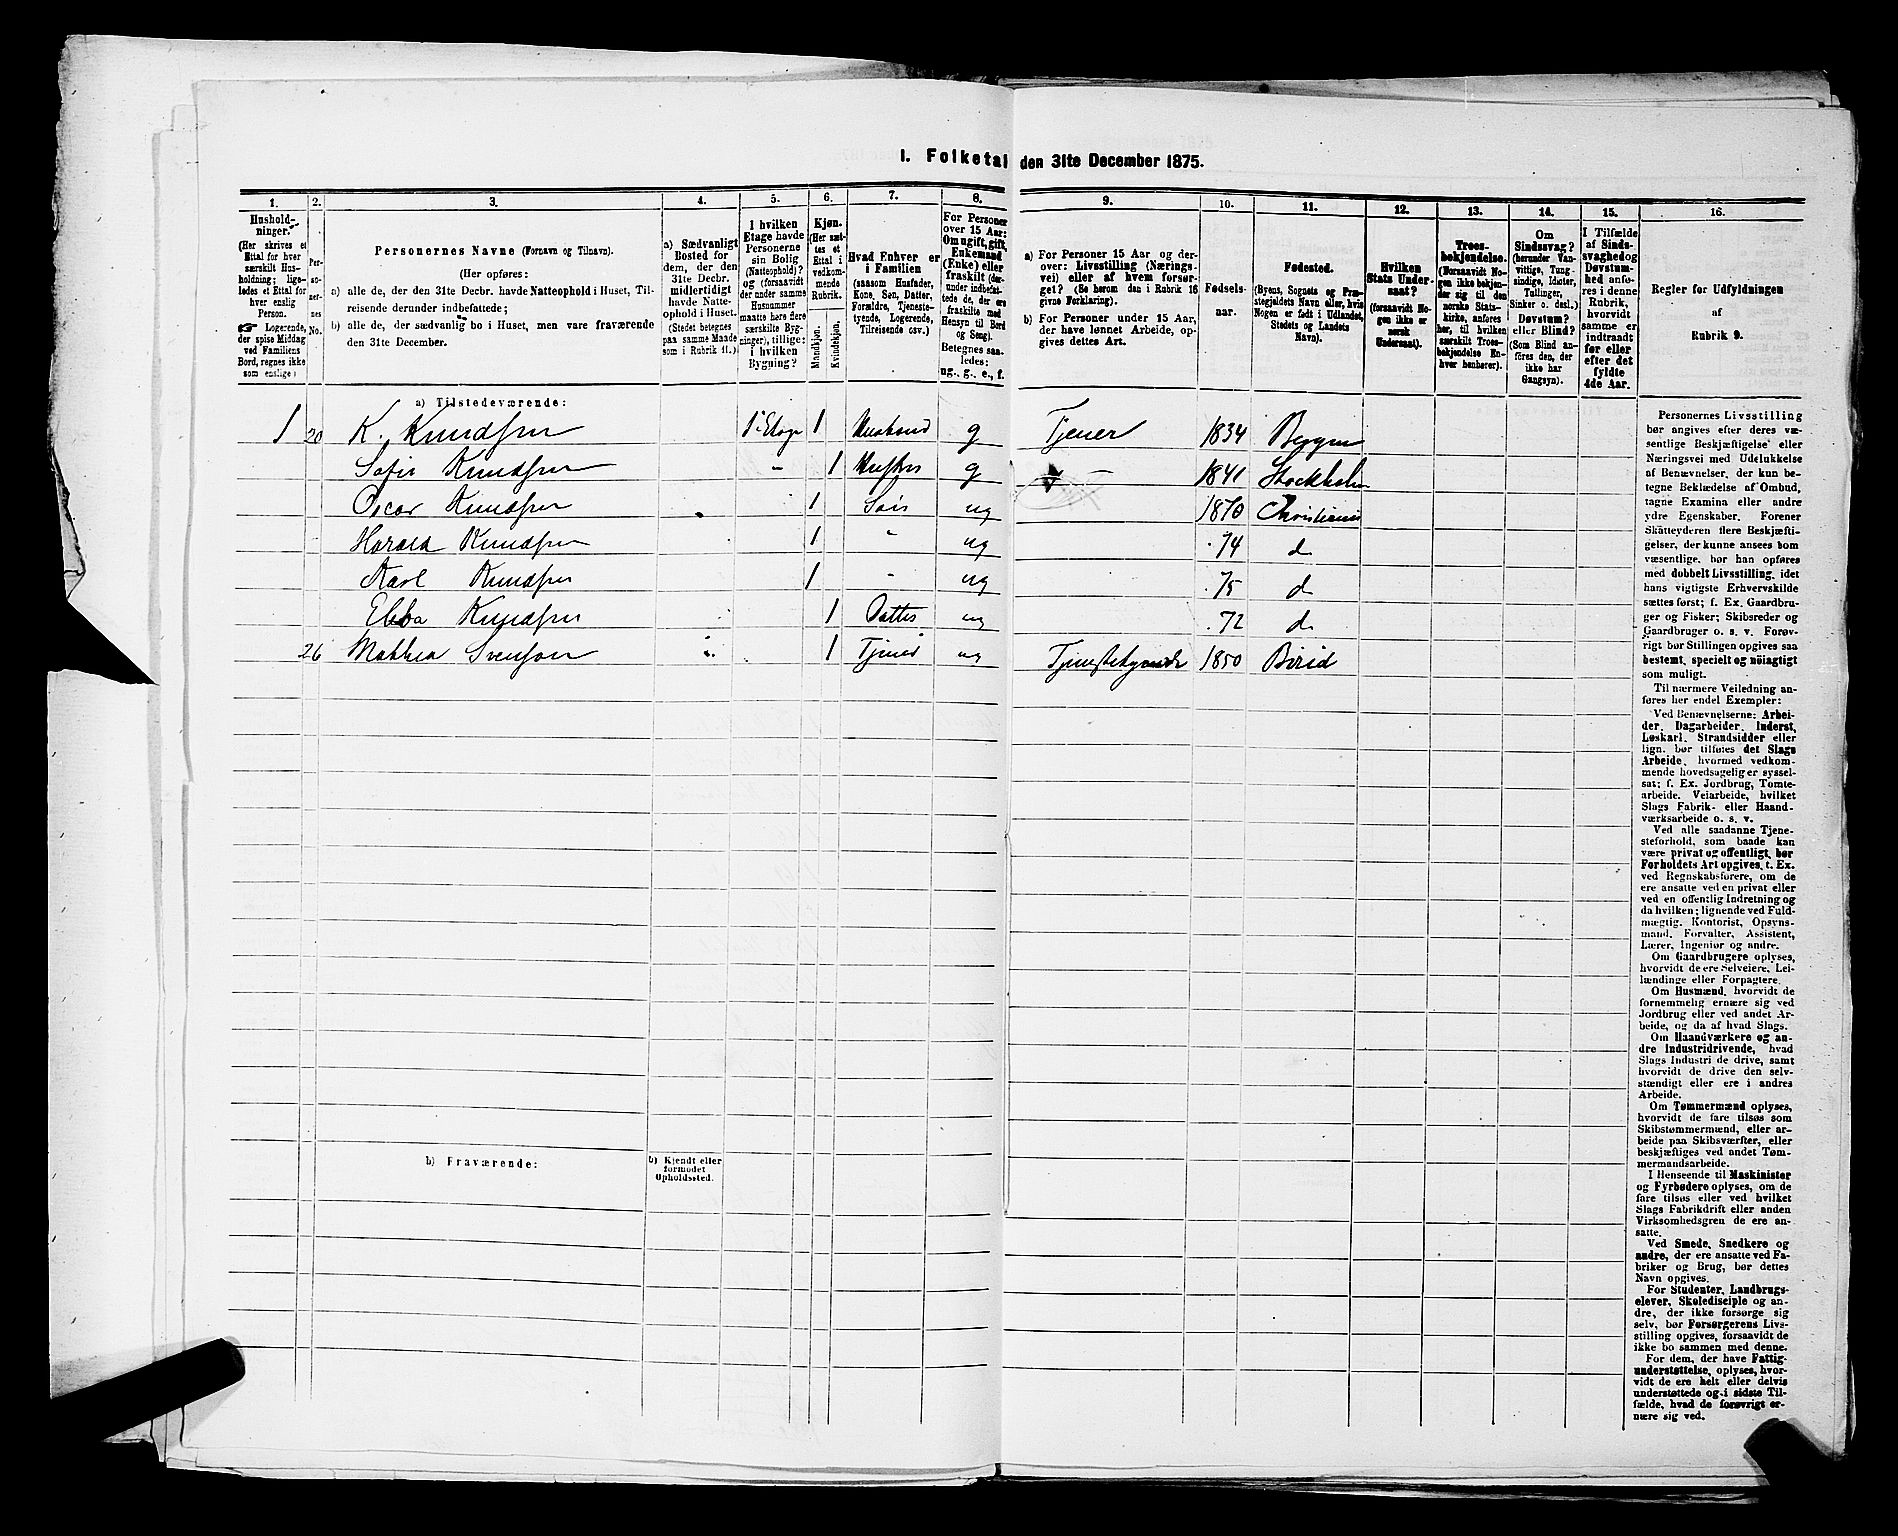 I. Folketal den 31te December 1875.
1. 2. 3. 4. 5. 6. 7. 8. 9. 10. 11. 12. 13. 14. 15. 16.
Husholdninger.
(Her skrives et Ettal for hver særskilt Husholdning; ligeledes et Ettal for hver enslig Person.
☞ Logerende, der spise Middag ved Familiens Bord, regnes ikke som enslige)
Personernes No.
Personernes Navne (Fornavn og Tilnavn).
(Her opføres:
a) alle de, der den 31te Decbr. havde Natteophold i Huset, Tilreisende derunder indbefattede;
b) alle de, der sædvanlig bo i Huset, men vare fraværende den 31te December.
a) Sædvanligt Bosted for dem, der den 31te Decbr. midlertidigt havde Natteophold i Huset.
(Stedet betegnes paa samme Maade som i Rubrik 11.)
I hvilken Etage havde Personerne sin Bolig (Natteophold)? og (forsaavidt der under samme Husnummer maatte høre flere særskilte Bygninger), tillige: i hvilken Bygning?
Kjøn.
(Her sættes et Ettal i vedkommende Rubrik.
Mandkjøn. Kvindekjøn.
Hvad Enhver er i Familien
(saasom Husfader, Kone, Søn, Datter, Forældre, Tjenestetyende, Logerende, Tilreisende osv.)
For Personer over 15 Aar: Om ugift, gift, Enkemand (Enke) eller fraskilt (derunder indbefattede de, der ere fraskilte med Hensyn til Bord og Seng).
Betegnes saaledes: ug., g., e., f.
a) For Personer 15 Aar og derover: Livsstilling (Næringsvei) eller af hvem forsørget? (Se herom den i Rubrik 16 givne Forklaring).
b) For Personer under 15 Aar, der have lønnet Arbeide, opgives dettes Art.
Fødselsaar.
Fødested.
(Byens, Sognets og Præstegjeldets Navn eller, hvis Nogen er født i Udlandet, Stedets og Landets Navn).
Hvilken Stats Undersaat?
(forsaavidt Nogen ikke er norsk Undersaat).
Troesbekjendelse.
(Forsaavidt Nogen ikke bekjender sig til den norske Statskirke, anføres her, til hvilken særskilt Troesbekjendelse Enhver henhører).
Om Sindssvag?
(herunder Vanvittige, Tungsindige, Idioter, Tullinger, Sinker o. desl.)
Døvstum? eller Blind?
(Som Blind anføres den, der ikke har Gangsyn).
I Tilfælde af Sindssvaghed og Døvstumhed anføres i denne Rubrik, hvorvidt samme er indtraadt før eller efter det fyldte 4de Aar.
Regler for Udfyldningen
af
Rubrik 9.
a) Tilstedeværende:
1 20 K. Knudsen 1 Etage 1 Husbond g Tjener 1834 Bergen
Sofie Knudsen " 1 Husfru g 1841 Stockholm
Oscar Knudsen 1 Søn ug 1870 Christiania
Harald Knudsen 1 " ug 74 d
Karl Knudsen 1 " ug 75 d
Ebba Knudsen 1 Datter ug 72 d
26 Mathea Svenson 1 Tjener ug Tjenestetyende 1850 Birid
b) Fraværende:
b) Kjendt eller formodet Opholdssted.
Personernes Livsstilling
bør angives efter deres væ-
sentlige Beskjæftigelse eller
Næringsvei med Udelukkelse
af Benævnelser, der kun be-
tegne Beklædelse af Ombud,
tagne Examina eller andre
ydre Egenskaber. Forener
Skatteyderen flere Beskjæfti-
gelser, der kunne ansees som
væsentlige, bør han opføres
med dobbelt Livsstilling, idet
hans vigtigste Erhvervskilde
sættes først; f. Ex. Gaardbru-
ger og Fisker; Skibsreder og
Gaardbruger o. s. v. Forøv-
rigt bør Stillingen opgives saa
bestemt, specielt og nöiagtigt
som muligt.
Til nærmere Veiledning an-
føres her endel Exempler:
Ved Benævnelserne: Arbei-
der, Dagarbeider, Inderst,
Løskarl, Strandsidder eller
lign. bør tilføies det Slags
Arbeide, hvormed vedkom-
mende hovedsagelig er syssel-
sat; f. Ex. Jordbrug, Tomte-
arbeide, Veiarbeide, hvilket
Slags Fabrik- eller Haand-
værksarbeide o. s. v.
Ved alle saadanne Tjene-
steforhold, som baade kan
være privat og offentligt, bør
Forholdets Art opgives, t. Ex.
ved Regnskabsførere, om de
ere ansatte ved en privat eller
ved en offentlig Indretning og
da hvilken; lignende ved Fuld-
mægtig, Kontorist, Opsyns-
mand, Forvalter, Assistent,
Lærer, Ingeniør og andre.
Om Gaardbrugere oplyses,
hvorvidt de ere Selveiere, Lei-
lændinge eller Forpagtere.
Om Husmænd, hvorvidt de
fornemmelig ernære sig ved
Jordbrug eller ved andet Ar-
beide, og da af hvad Slags.
Om Haandværkere og an-
dre Industridrivende, hvad
Slags Industri de drive, samt
hvorvidt de drive den selv-
stændigt eller ere i andres
Arbeide.
Om Tømmermænd oplyses,
hvorvidt de fare tilsøs som
Skibstømmermænd, eller ar-
beide paa Skibsværfter, eller
beskjæftiges ved andet Tøm-
mermandsarbeide.
I Henseende til Maskinister
og Fyrbødere oplyses, om de
fare tilsøs eller ved hvilket
Slags Fabrikdrift eller anden
Virksomhedsgren de ere an-
satte.
Ved Smede, Snedkere og
andre, der ere ansatte ved Fa-
briker og Brug, bør dettes
Navn opgives.
For Studenter, Landbrugs-
elever, Skoledisciple og an-
dre, der ikke forsørge sig
selv, bør Forsørgerens Livs-
stilling opgives, forsaavidt de
ikke bo sammen med denne.
For dem, der have Fattig-
understøttelse, oplyses, hvor-
vidt de ere helt eller delvis
understøttede og i sidste Til-
fælde, hvad de forøvrigt er-
nære sig ved.